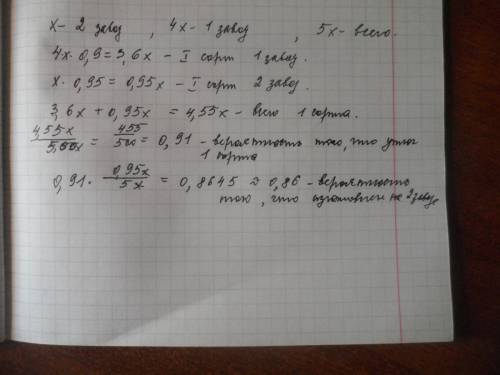 x- 2 завод , 4x- 1 завод , 5x- всего.
4x· 0,9=3,6x - I сорт 1 завод.
x· 0,95= 0,95x - I сорт 2 завод.
3,6x + 0,95x = 4,55x - всего 1 сорта.
4,55x/5,00x = 455/500 = 0,91 - вероятность того, что утюг
1 сорта
0,91· 0,95x/5x = 0,8645 ≈ 0,86 - вероятность
того, что изготовлен на 2 заводе